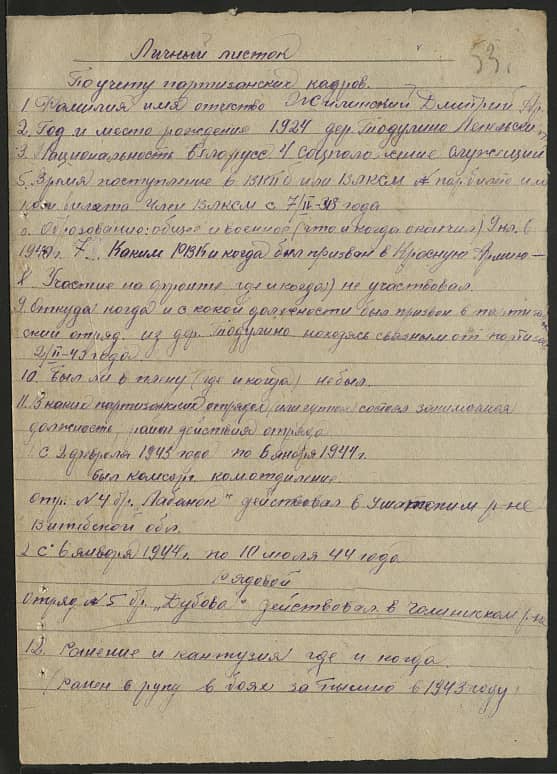 Личный листок
53.
По учету партизанских кадров.
1. Фамилия имя отчество Жилинский Дмитрий Гр.
2. Год и место рождение 1924 дер. Тодулино Лепельски
3. Национальность белорусс 4 соцположение служещий
5. Время поступление в ВКПб или ВЛКСМ № парбилета и м
ком билета член ВЛКСМ с 7/II-
6. Образование: общее и военное (что и когда окончил) 9 кл. в
1940г. 7. Каким РВК и когда был призван в Красную Армию —
8. Участие на фронте где и когда) не участвовал.
9. Откуда когда и с какой должности был призван в партиза
нский отряд. из дер. Тодулино находясь связным от партизан
2/II-43 года
10. Был ли в плену (где и когда) не был.
11. В каких партизанских отрядах или группах состоял занимаемая
должность, район действия отряда
с 2 февраля 1943 года по 6 января 1944г.
был комсорг. комотделение
отр. №4 бр. "Лабанок" действовал в Ушатском р-не
Витебской обл.
2 с 6 января 1944г. по 10 июля 44 года
рядовой
отряд №5 бр. "Дубова" действовал в Чашникском р-не
12. Ранение и кантузия где и когда.
(ранен в руку в боях за Пышно в 1943 году)